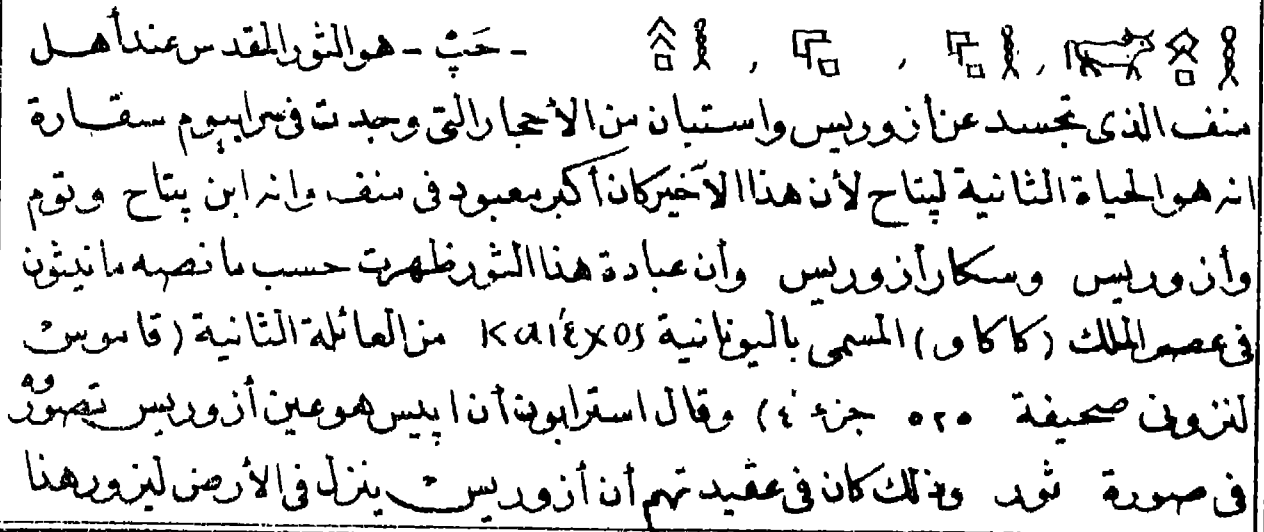 - حَپْ - هو الثور المقدس عند أهل
منف الذى تجسد عن أزوريس واستبان من الأحجار التى وجدت فى سرابيوم سقارة
انه هو الحياة الثانية لپتاح لأن هذا الأخير كان أكبر معبود فى منف وانه ابن پتاح وتوم
وأزوريس وسكار أزوريس وأن عبادة هذا الثور ظهرت حسب ما نصبه مانيثون
فى عصر الملك (كاكاو) المسمى باليونانية Καιέχος من العائلة الثانية (قاموس
لنزونى صحيفة ٥٢٥ جزء ٤) وقال استرابون أن اپيس هو عين أزوريس تصوّر
فى صورة ثور وذلك كان فى عقيدتهم أن أزوريس ينزل فى الأرض ليزور هنا